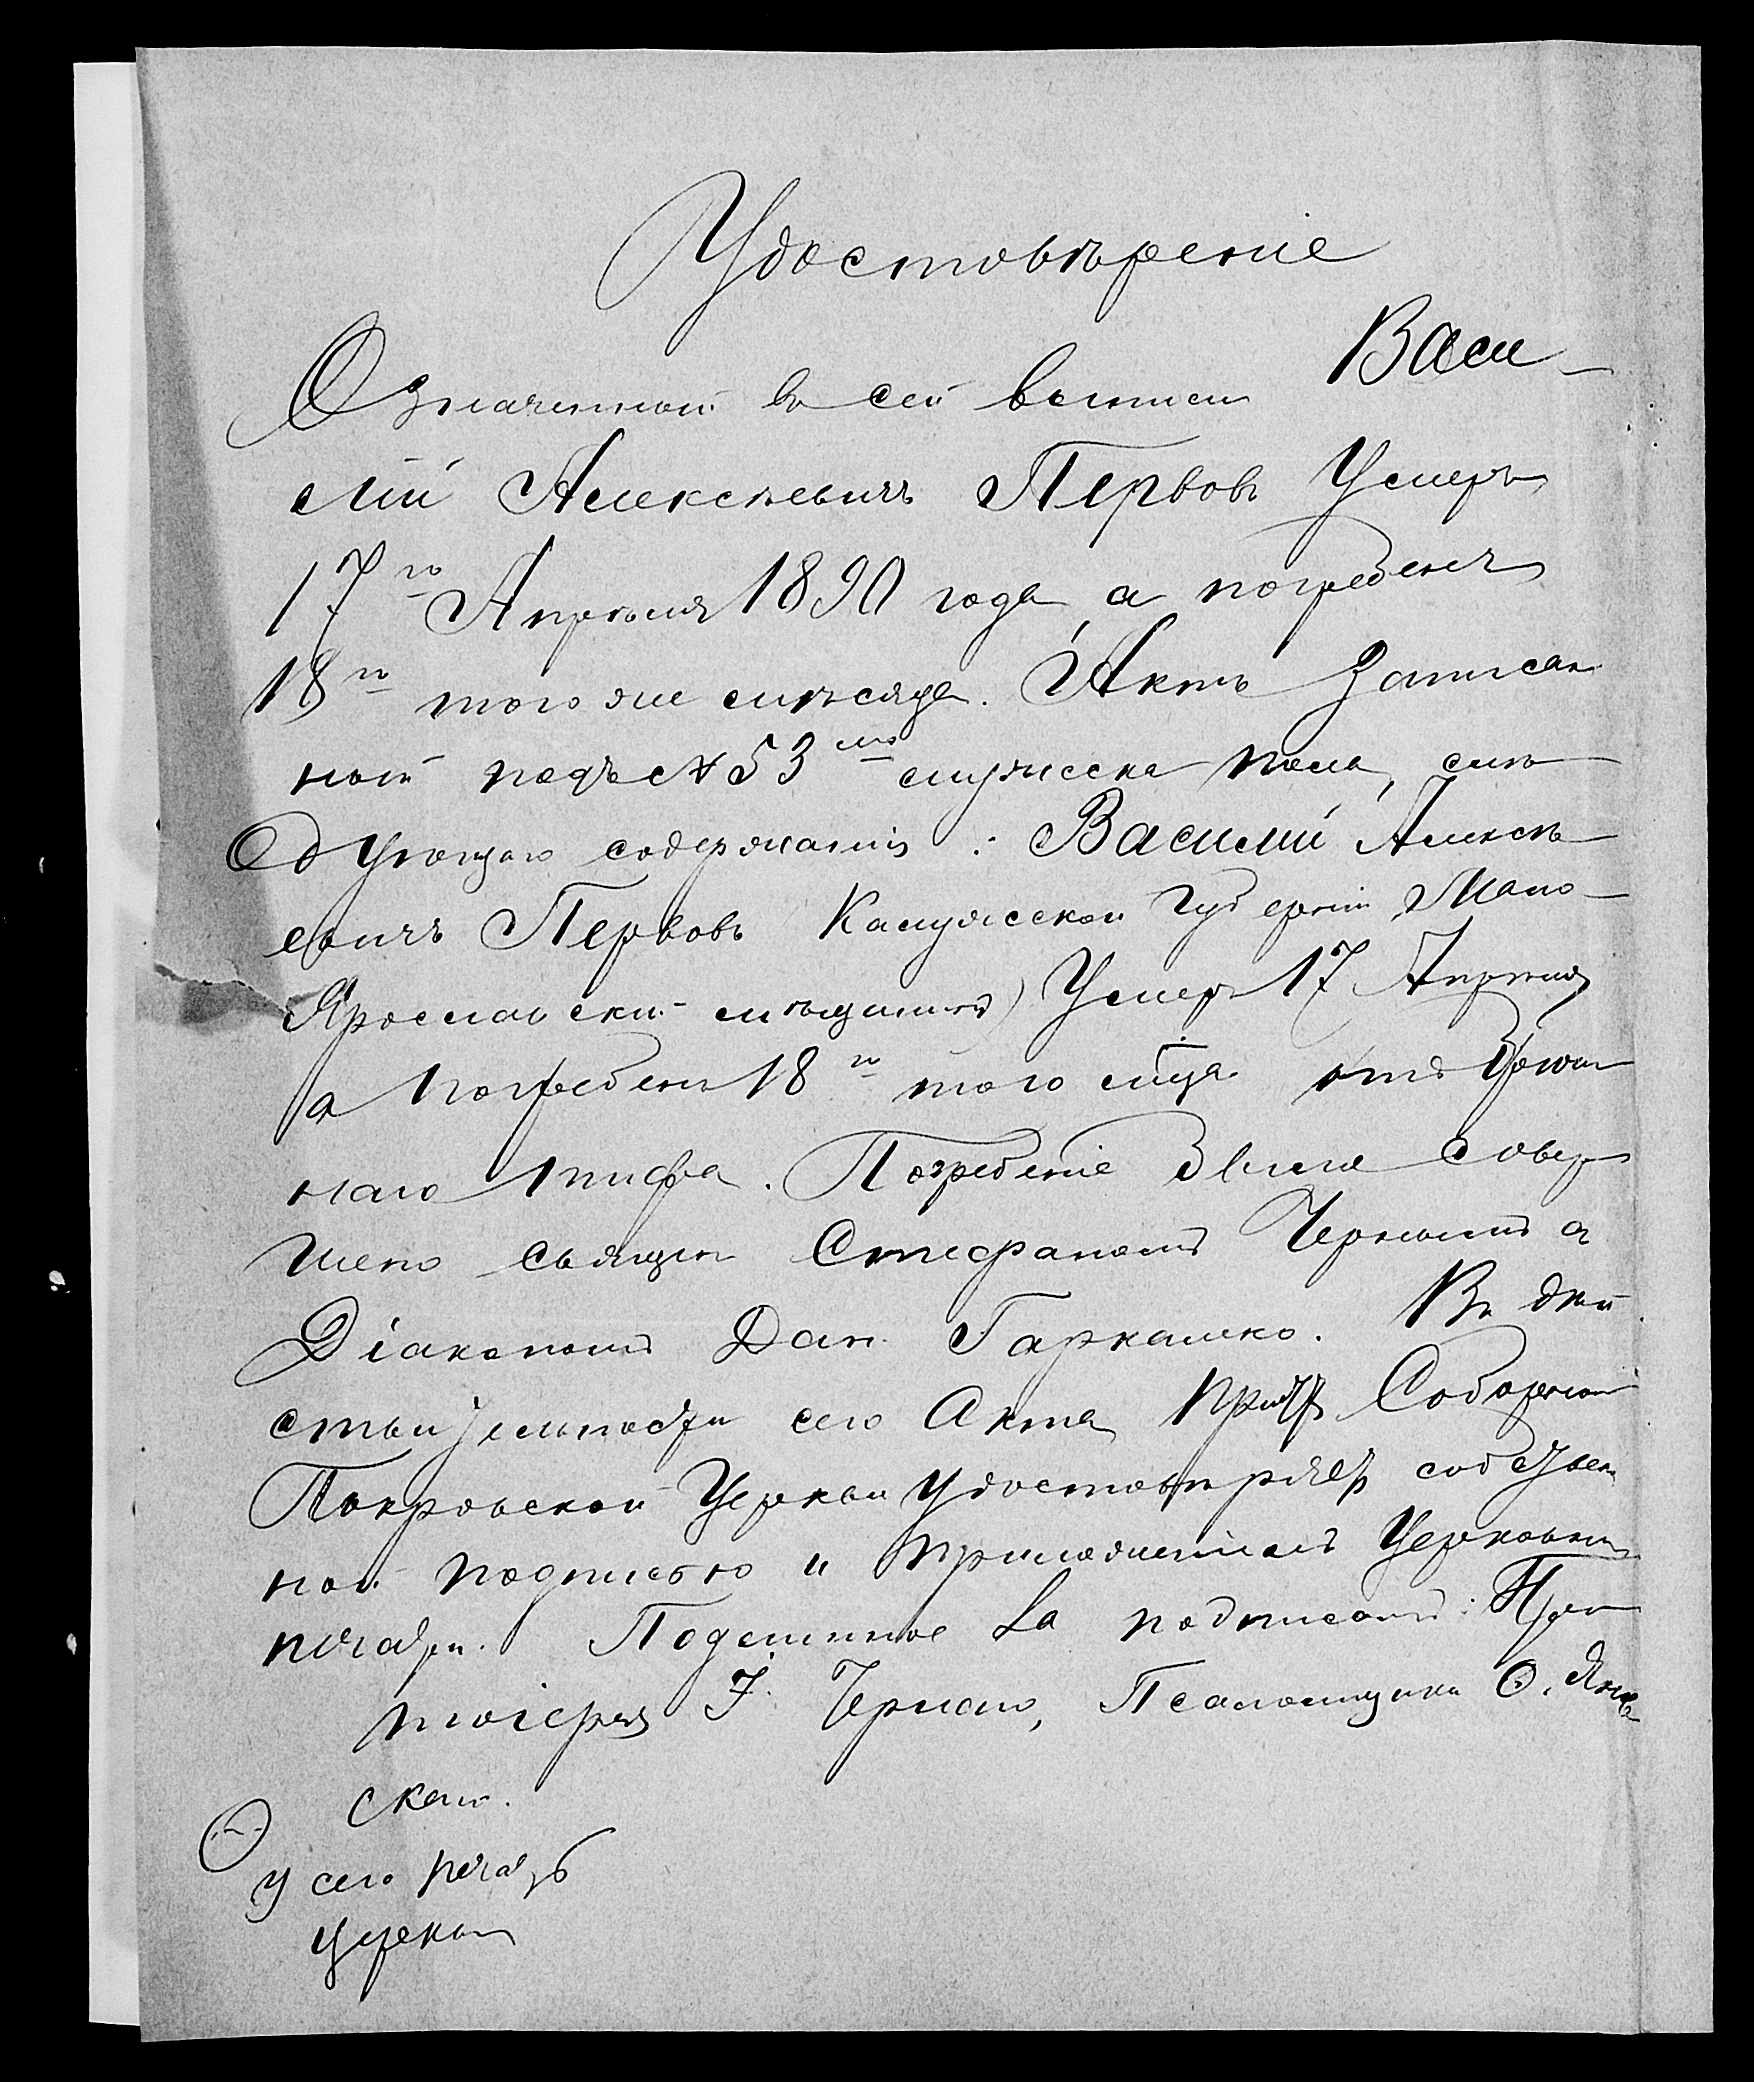 Удостовѣреніе
Означенный въ сей выписи Васи-
лій Алексѣевичъ Первовъ Умеръ
17го Апрѣля 1890 года, а погребенъ
18го того же мѣсяца. Актъ Записан
ный подъ № 53мъ мужеска пола, слѣ
дующаго содержанія: Василій Алексѣ
евичъ Первовъ Калужской Губерніи Мало-
Ярославскій мѣщанинъ) Умеръ 17 Апрѣля
а погребенъ 18го того мѣца отъ Брюш
наго тифа. Погребеніе было совер
шено священ Стефаномъ Чернымъ а
Діакономъ Дан. Гаркаленко. Въ дѣй
ствительности сего Акта причтъ Соборной
Покровской Церкви удостовѣряетъ собствен
ной подписью и приложеніемъ Церковной
печати. Подлинное за подписомъ: Про
тоіерея І. Чернаго, Псаломщика Ѳ.
скаго.
у сего печать
церкви